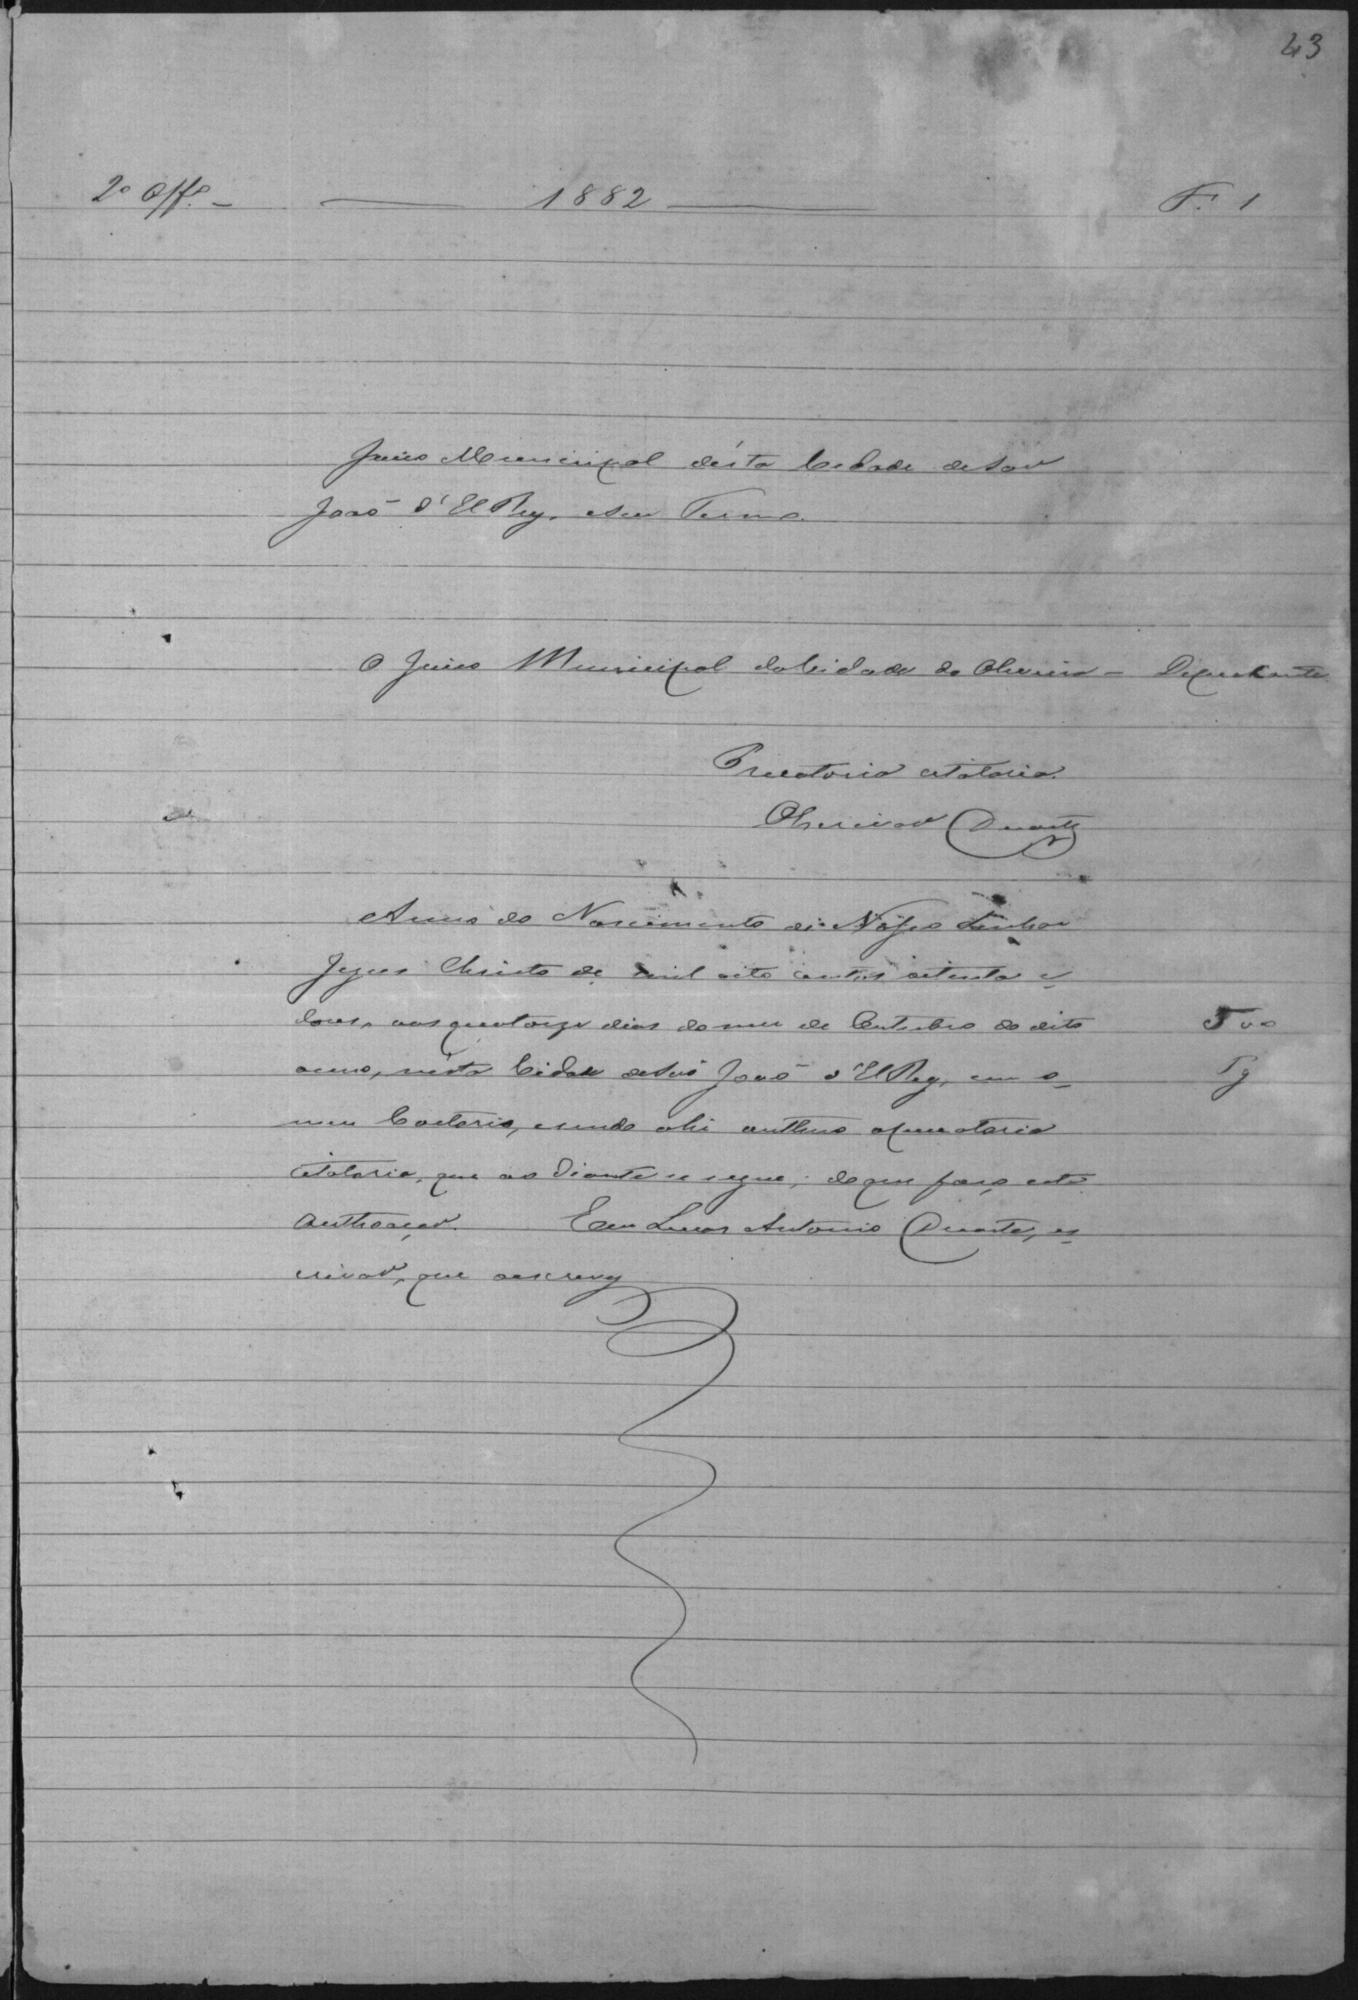 43
2º Off.º — 1882 — F. 1
Juizo Municipal désta Cidade de São
João d'El Rey, e seu Termo.
O Juizo Municipal da Cidade de Oliveira — Deprecante
Precatoria citatoria.
O Escrivão Duarte
Anno do Nascimento de Nosso Senhor
Jezus Christo de mil oito centos oitenta e
dous, aos quatorze dias do mez de Outubro do dito
anno, nésta Cidade de São João d'El Rey, em o
500
meu Cartorio, e sendo ahi authuo a precatoria
Pg
citatoria, que ao diante se segue; do que faço esta
authoação. Eu Lucas Antonio Duarte, es
crivão, que o escrevy